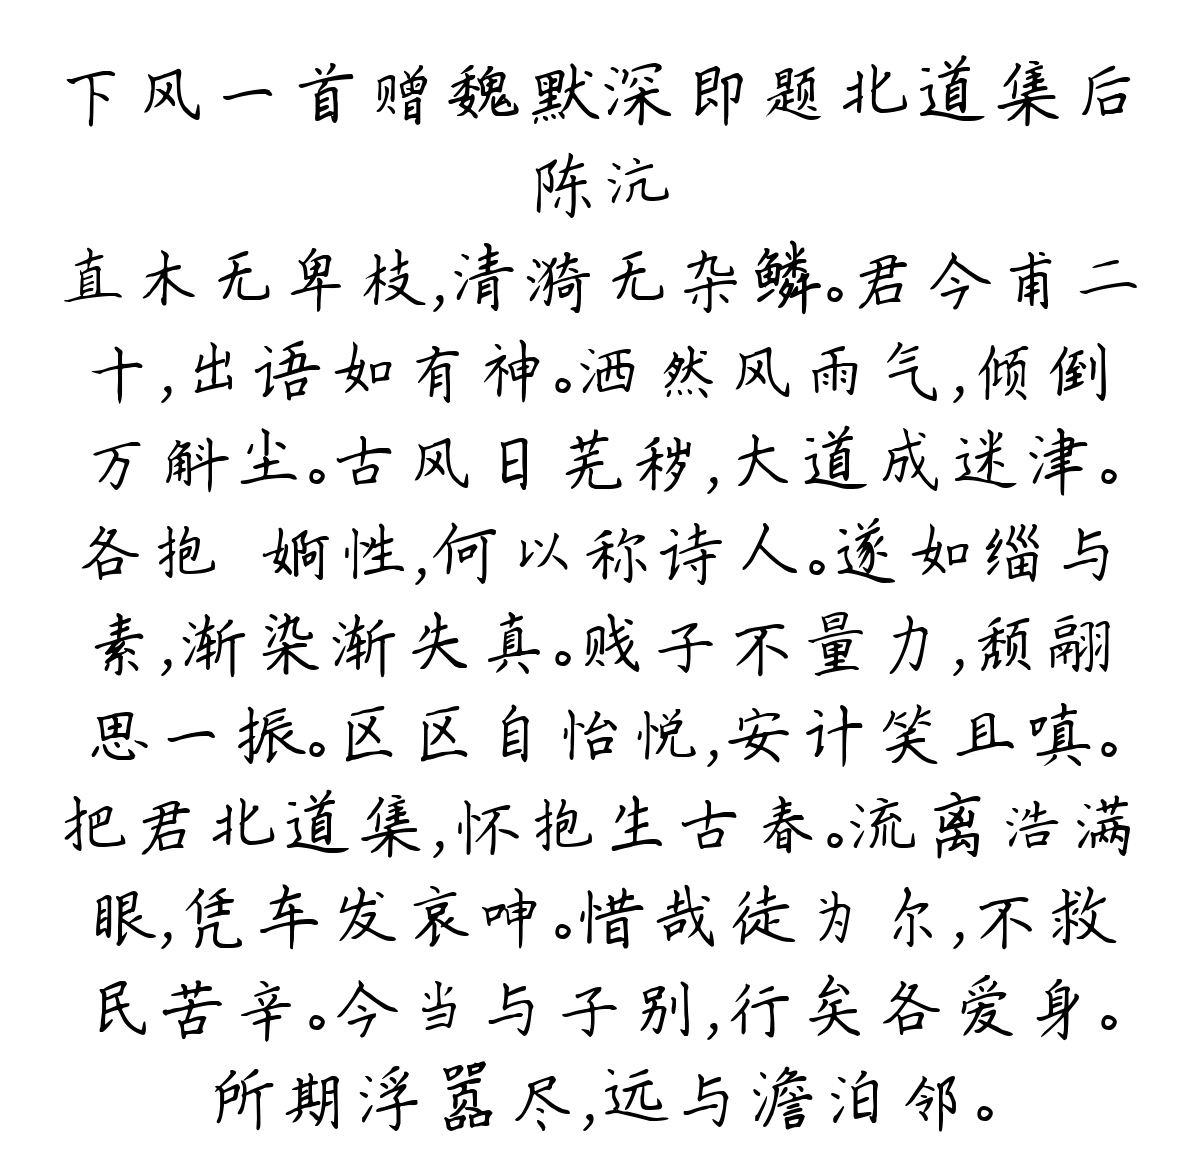 下风一首赠魏默深即题北道集后
陈沆
直木无卑枝,清漪无杂鳞。君今甫二
十,出语如有神。洒然风雨气,倾倒
万斛尘。古风日芜秽,大道成迷津。
各抱 婀性,何以称诗人。遂如缁与
素,渐染渐失真。贱子不量力,颓翮
思一振。区区自怡悦,安计笑且嗔。
把君北道集,怀抱生古春。流离浩满
眼,凭车发哀呻。惜哉徒为尔,不救
民苦辛。今当与子别,行矣各爱身。
所期浮嚣尽,远与澹泊邻。